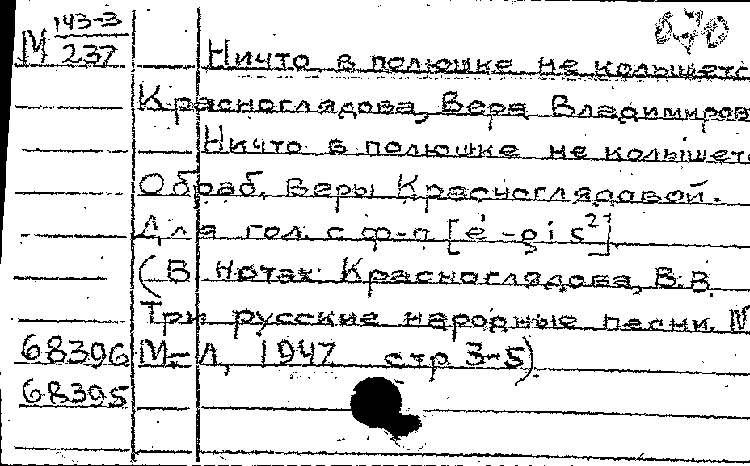 М 143-3/237
670
Ничто в полюшке не колышетс
Красноглядова, Вера Владимиров
Ничто в полюшке не колышетс
Обраб. Веры Красноглядовой.
Для гол. с ф-п [e¹-gis²]
(В нотах: Красноглядова, В.В.
Три русские народные песни.
68396 М.-Л, 1947 стр 3-5).
68395